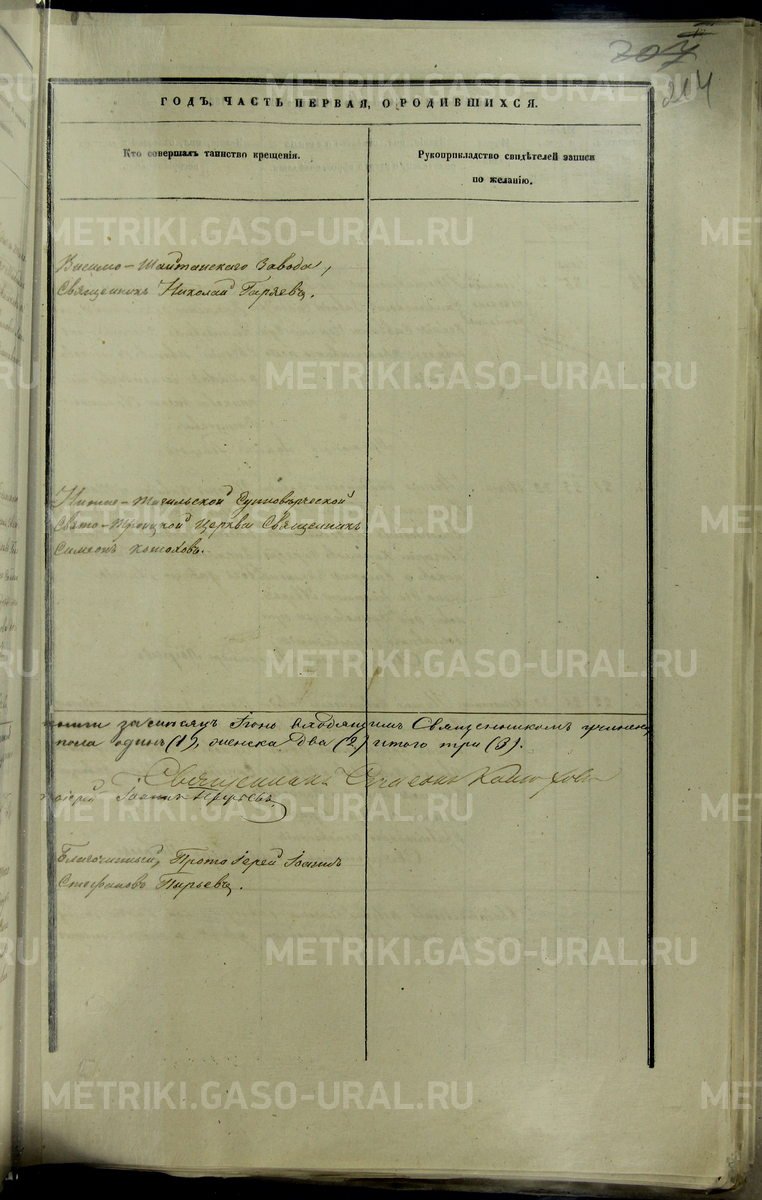 207
204
ГОДЪ, ЧАСТЬ ПЕРВАЯ, О РОДИВШИХСЯ.
Кто совершалъ таинство крещенія.
Рукоприкладство свидѣтелей записи
по желанію.
Висимо-Шайтанскаго Завода,
Священникъ Николай Гаряевъ.
Нижне-Тагильской Единовѣрческой
Свято-Троицкой Церкви Священникъ
Симеонъ Конюховъ.
за мѣсяцъ Іюнь Священникомъ
пола одинъ (1), женска два (2) итого три (3).
Священникъ Симеонъ Конюховъ
Іоаннъ Пырьевъ
Благочинный, Протоіерей Іоаннъ
Стефановъ Пырьевъ.
METRIKI.GASO-URAL.RU